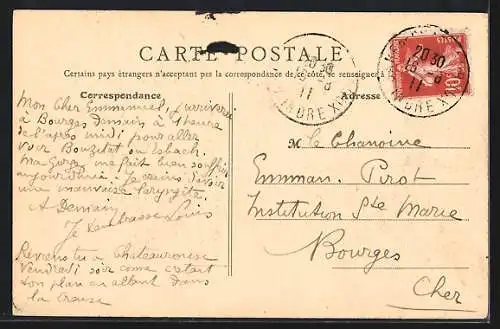 CARTE POSTALE
Certains pays étrangers n'acceptent pas la correspondance de ce côté, se renseigner à
Correspondance
Adresse
Mon Cher Emmanuel, j'arriverai
à Bourges Demain à 1 heure
de l'après midi pour aller
voir Bouzitat ou
Ma Gorge m'a fait bien souffrir
aujourd'hui. Je crains d'avoir
une mauvaise laryngite
A Demain
Je t'embrasse Louis
Reviens tu à Chateauroux
Vendredi soir come c'etait
ton plan en allant dans
la Creuse
M le Chanoine
Emman. Pirot
Institution Ste Marie
Bourges
Cher
20 30
11
INDRE
20 30
11
INDRE
POSTES
10